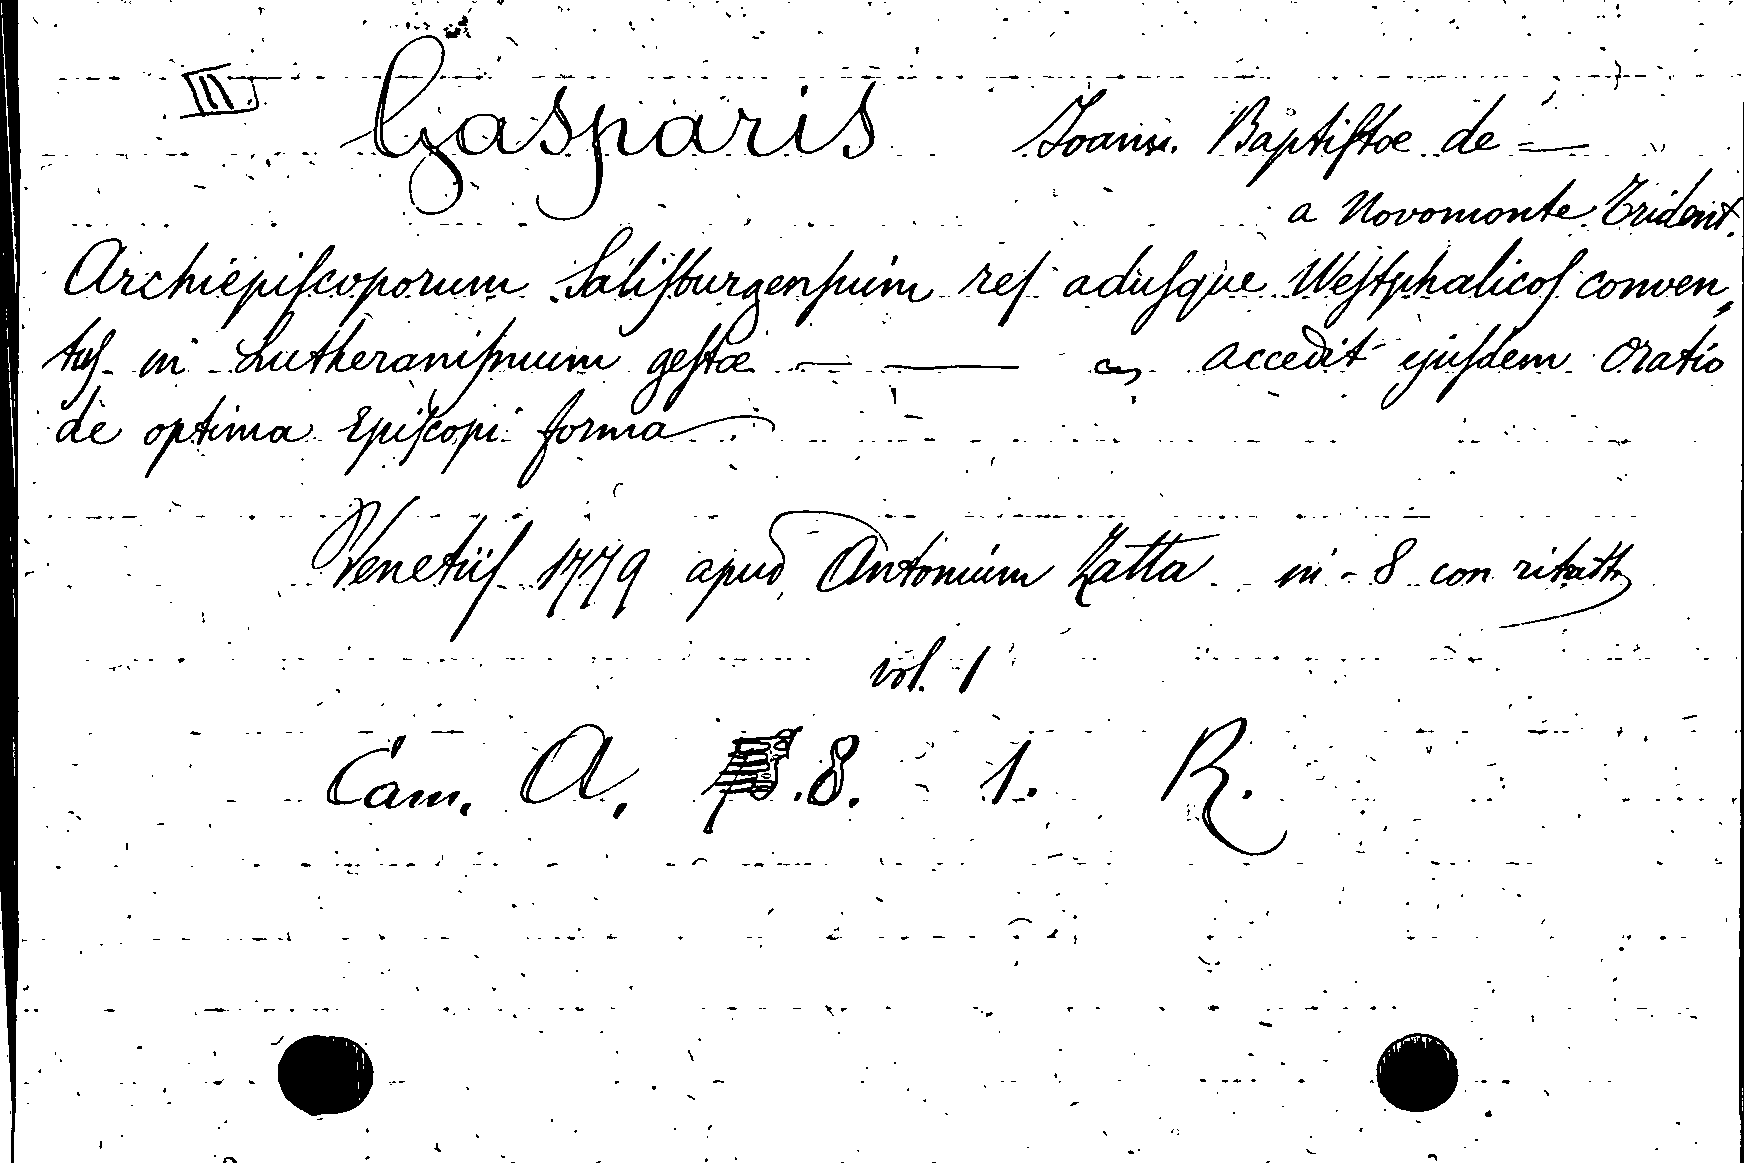 III Gasparis Joann. Baptistæ de —
a Novomonte Trident.
Archiepiscoporum Salisburgensium res adusque Westphalicos conven„
tus in Lutheranismum gestæ — —— accedit ejusdem Oratio
de optima Episcopi forma
Venetiis 1779 apud Antonium Zatta in-8 con ritratto
vol. 1
Cam. A. .8. 1. R.